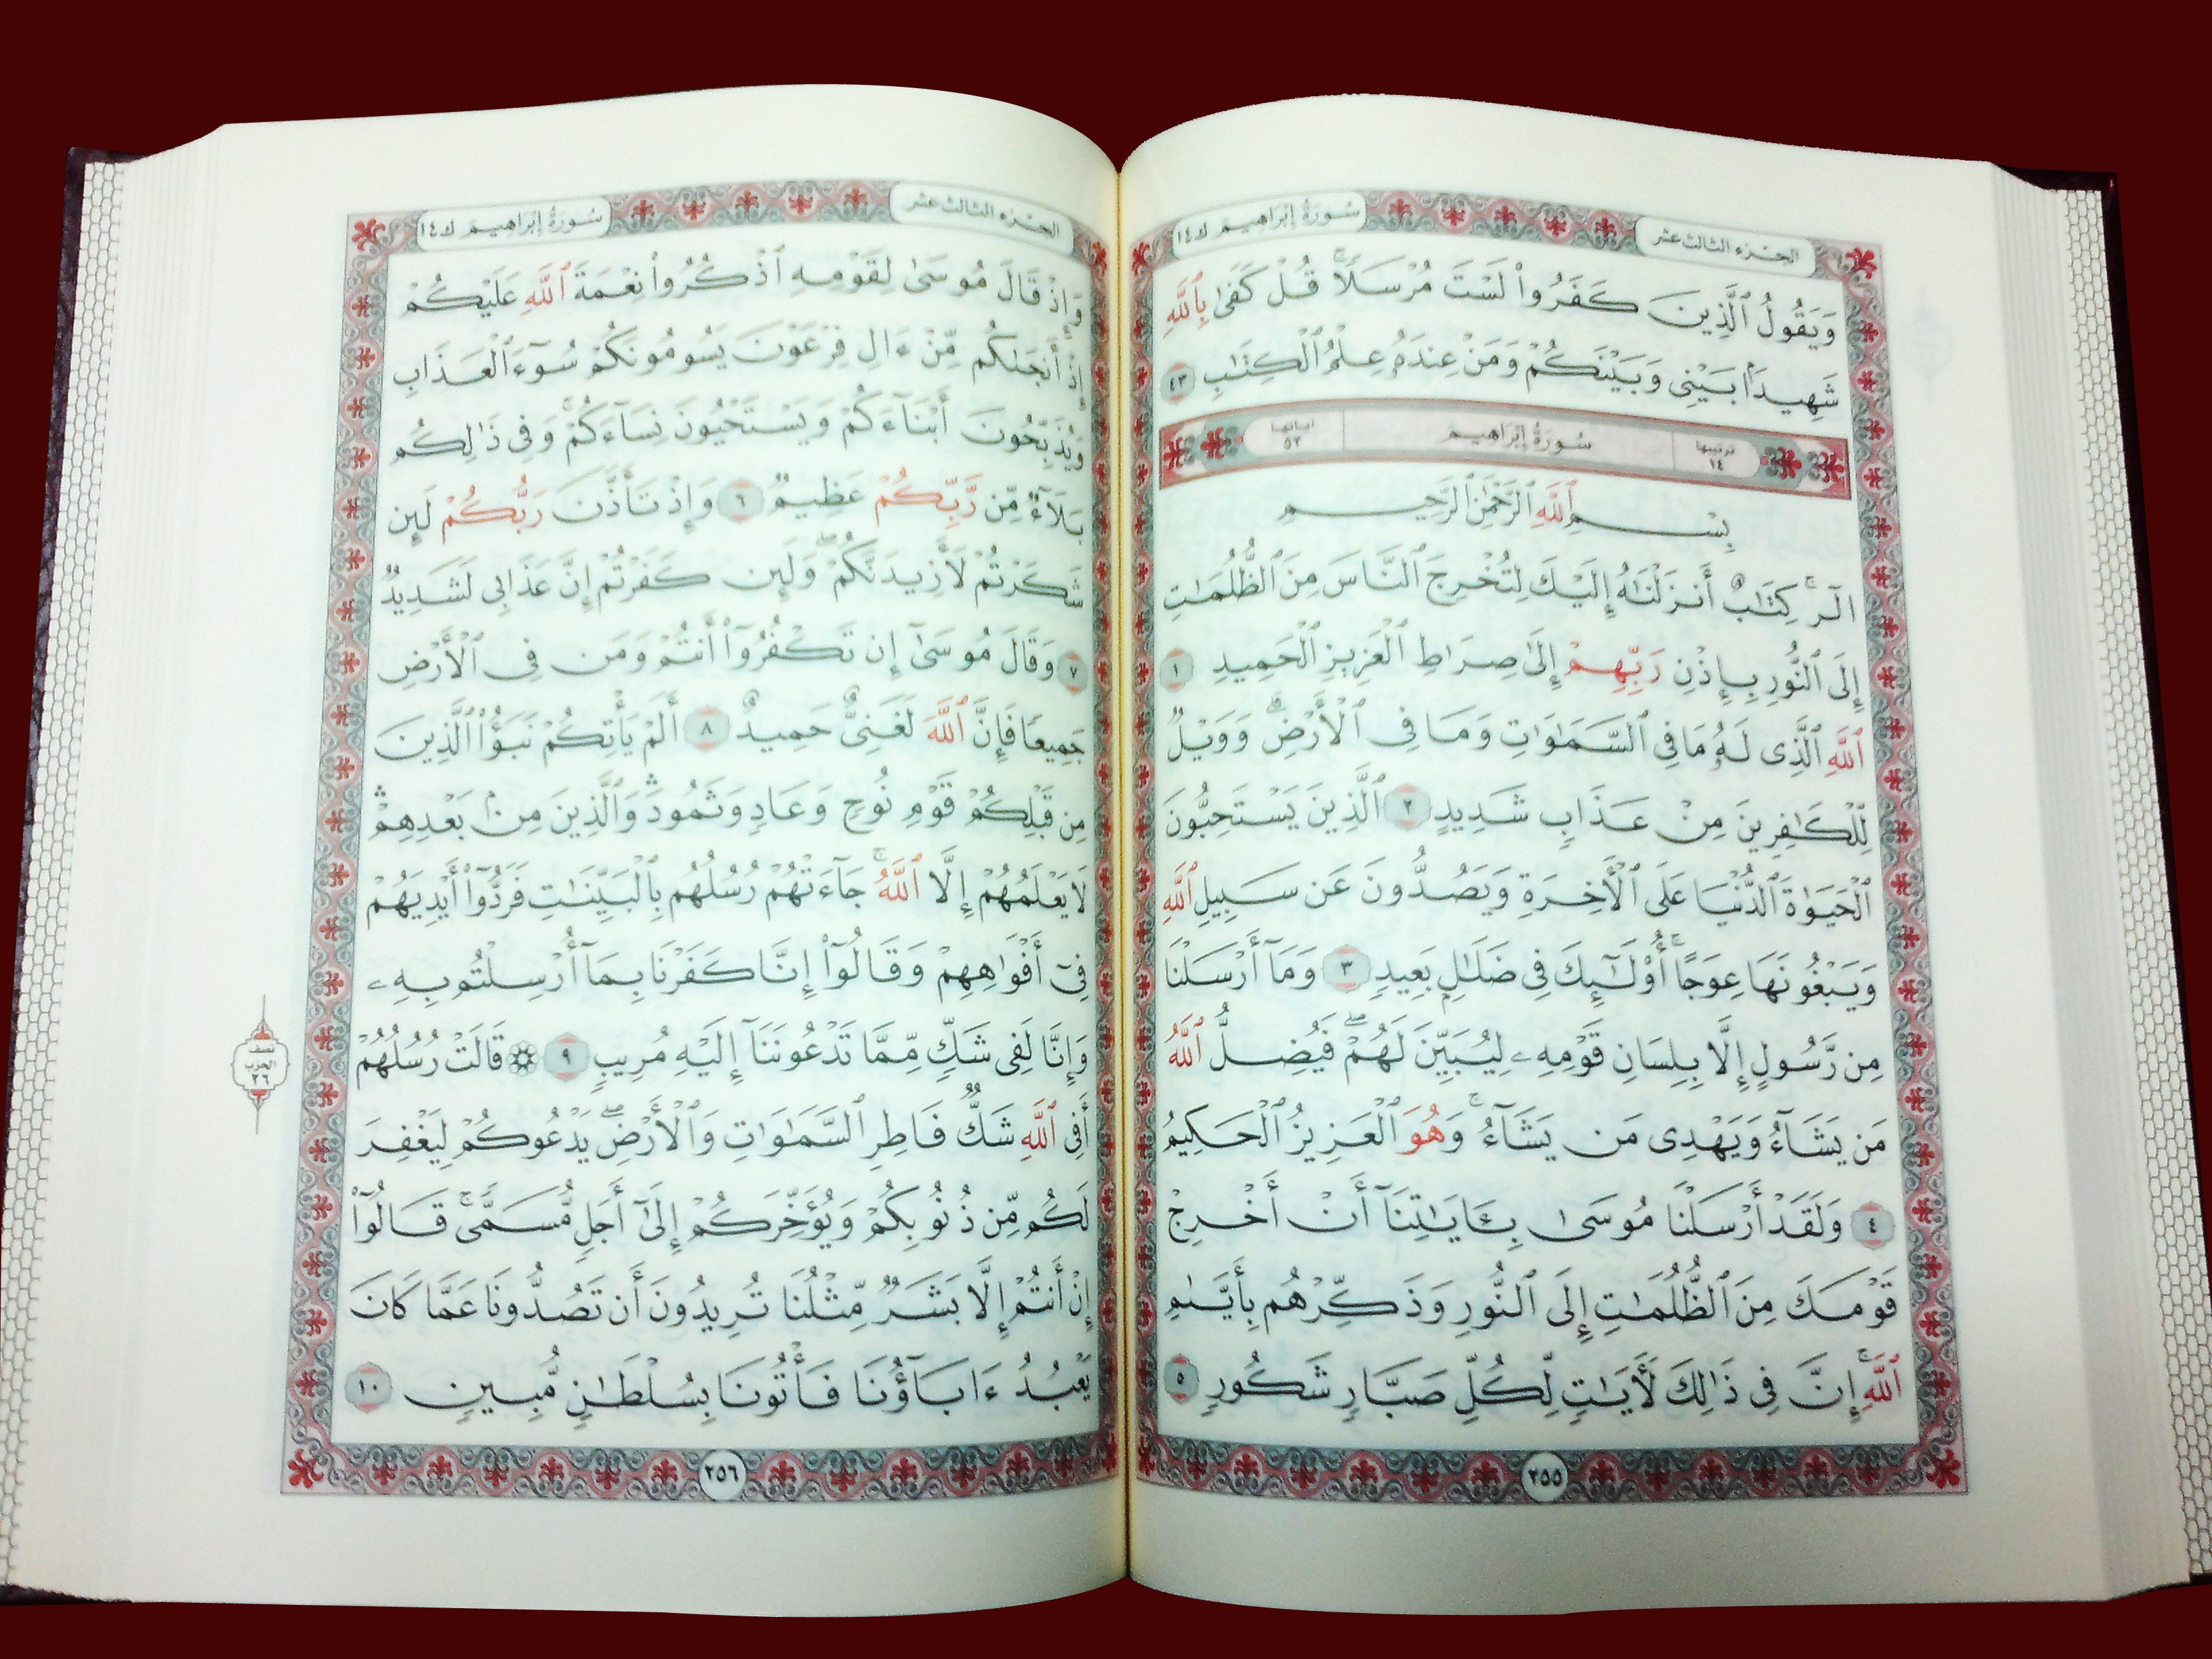 الجزء الثالث عشر
سُورَةُ إِبْرَاهِيمَ ك ١٤
وَيَقُولُ ٱلَّذِينَ كَفَرُوا۟ لَسْتَ مُرْسَلًا ۚ قُلْ كَفَىٰ بِٱللَّهِ
شَهِيدًۢا بَيْنِى وَبَيْنَكُمْ وَمَنْ عِندَهُۥ عِلْمُ ٱلْكِتَٰبِ ٤٣
ترتيبها ١٤ سُورَةُ إِبْرَاهِيمَ آياتها ٥٢
بِسْمِ ٱللَّهِ ٱلرَّحْمَٰنِ ٱلرَّحِيمِ
الٓر ۚ كِتَٰبٌ أَنزَلْنَٰهُ إِلَيْكَ لِتُخْرِجَ ٱلنَّاسَ مِنَ ٱلظُّلُمَٰتِ
إِلَى ٱلنُّورِ بِإِذْنِ رَبِّهِمْ إِلَىٰ صِرَٰطِ ٱلْعَزِيزِ ٱلْحَمِيدِ ١
ٱللَّهِ ٱلَّذِى لَهُۥ مَا فِى ٱلسَّمَٰوَٰتِ وَمَا فِى ٱلْأَرْضِ ۗ وَوَيْلٌ
لِّلْكَٰفِرِينَ مِنْ عَذَابٍ شَدِيدٍ ٢ ٱلَّذِينَ يَسْتَحِبُّونَ
ٱلْحَيَوٰةَ ٱلدُّنْيَا عَلَى ٱلْأَخِرَةِ وَيَصُدُّونَ عَن سَبِيلِ ٱللَّهِ
وَيَبْغُونَهَا عِوَجًا ۚ أُو۟لَٰٓئِكَ فِى ضَلَٰلٍۭ بَعِيدٍ ٣ وَمَآ أَرْسَلْنَا
مِن رَّسُولٍ إِلَّا بِلِسَانِ قَوْمِهِۦ لِيُبَيِّنَ لَهُمْ ۖ فَيُضِلُّ ٱللَّهُ
مَن يَشَآءُ وَيَهْدِى مَن يَشَآءُ ۚ وَهُوَ ٱلْعَزِيزُ ٱلْحَكِيمُ
٤ وَلَقَدْ أَرْسَلْنَا مُوسَىٰ بِـَٔايَٰتِنَآ أَنْ أَخْرِجْ
قَوْمَكَ مِنَ ٱلظُّلُمَٰتِ إِلَى ٱلنُّورِ وَذَكِّرْهُم بِأَيَّىٰمِ
ٱللَّهِ ۚ إِنَّ فِى ذَٰلِكَ لَأَيَٰتٍ لِّكُلِّ صَبَّارٍ شَكُورٍ ٥
٢٥٥
الجزء الثالث عشر
سُورَةُ إِبْرَاهِيمَ ك ١٤
وَإِذْ قَالَ مُوسَىٰ لِقَوْمِهِ ٱذْكُرُوا۟ نِعْمَةَ ٱللَّهِ عَلَيْكُمْ
إِذْ أَنجَىٰكُم مِّنْ ءَالِ فِرْعَوْنَ يَسُومُونَكُمْ سُوٓءَ ٱلْعَذَابِ
وَيُذَبِّحُونَ أَبْنَآءَكُمْ وَيَسْتَحْيُونَ نِسَآءَكُمْ ۚ وَفِى ذَٰلِكُم
بَلَآءٌ مِّن رَّبِّكُمْ عَظِيمٌ ٦ وَإِذْ تَأَذَّنَ رَبُّكُمْ لَئِن
شَكَرْتُمْ لَأَزِيدَنَّكُمْ ۖ وَلَئِن كَفَرْتُمْ إِنَّ عَذَابِى لَشَدِيدٌ
٧ وَقَالَ مُوسَىٰٓ إِن تَكْفُرُوٓا۟ أَنتُمْ وَمَن فِى ٱلْأَرْضِ
جَمِيعًا فَإِنَّ ٱللَّهَ لَغَنِىٌّ حَمِيدٌ ٨ أَلَمْ يَأْتِكُمْ نَبَؤُا۟ ٱلَّذِينَ
مِن قَبْلِكُمْ قَوْمِ نُوحٍ وَعَادٍ وَثَمُودَ ۛ وَٱلَّذِينَ مِنۢ بَعْدِهِمْ ۛ
لَا يَعْلَمُهُمْ إِلَّا ٱللَّهُ ۚ جَآءَتْهُمْ رُسُلُهُم بِٱلْبَيِّنَٰتِ فَرَدُّوٓا۟ أَيْدِيَهُمْ
فِىٓ أَفْوَٰهِهِمْ وَقَالُوٓا۟ إِنَّا كَفَرْنَا بِمَآ أُرْسِلْتُم بِهِۦ
وَإِنَّا لَفِى شَكٍّ مِّمَّا تَدْعُونَنَآ إِلَيْهِ مُرِيبٍ ٩ ۞ قَالَتْ رُسُلُهُمْ
أَفِى ٱللَّهِ شَكٌّ فَاطِرِ ٱلسَّمَٰوَٰتِ وَٱلْأَرْضِ ۖ يَدْعُوكُمْ لِيَغْفِرَ
لَكُم مِّن ذُنُوبِكُمْ وَيُؤَخِّرَكُمْ إِلَىٰٓ أَجَلٍ مُّسَمًّى ۚ قَالُوٓا۟
إِنْ أَنتُمْ إِلَّا بَشَرٌ مِّثْلُنَا تُرِيدُونَ أَن تَصُدُّونَا عَمَّا كَانَ
يَعْبُدُ ءَابَآؤُنَا فَأْتُونَا بِسُلْطَٰنٍ مُّبِينٍ ١٠
نصف
الحزب
٢٦
٢٥٦